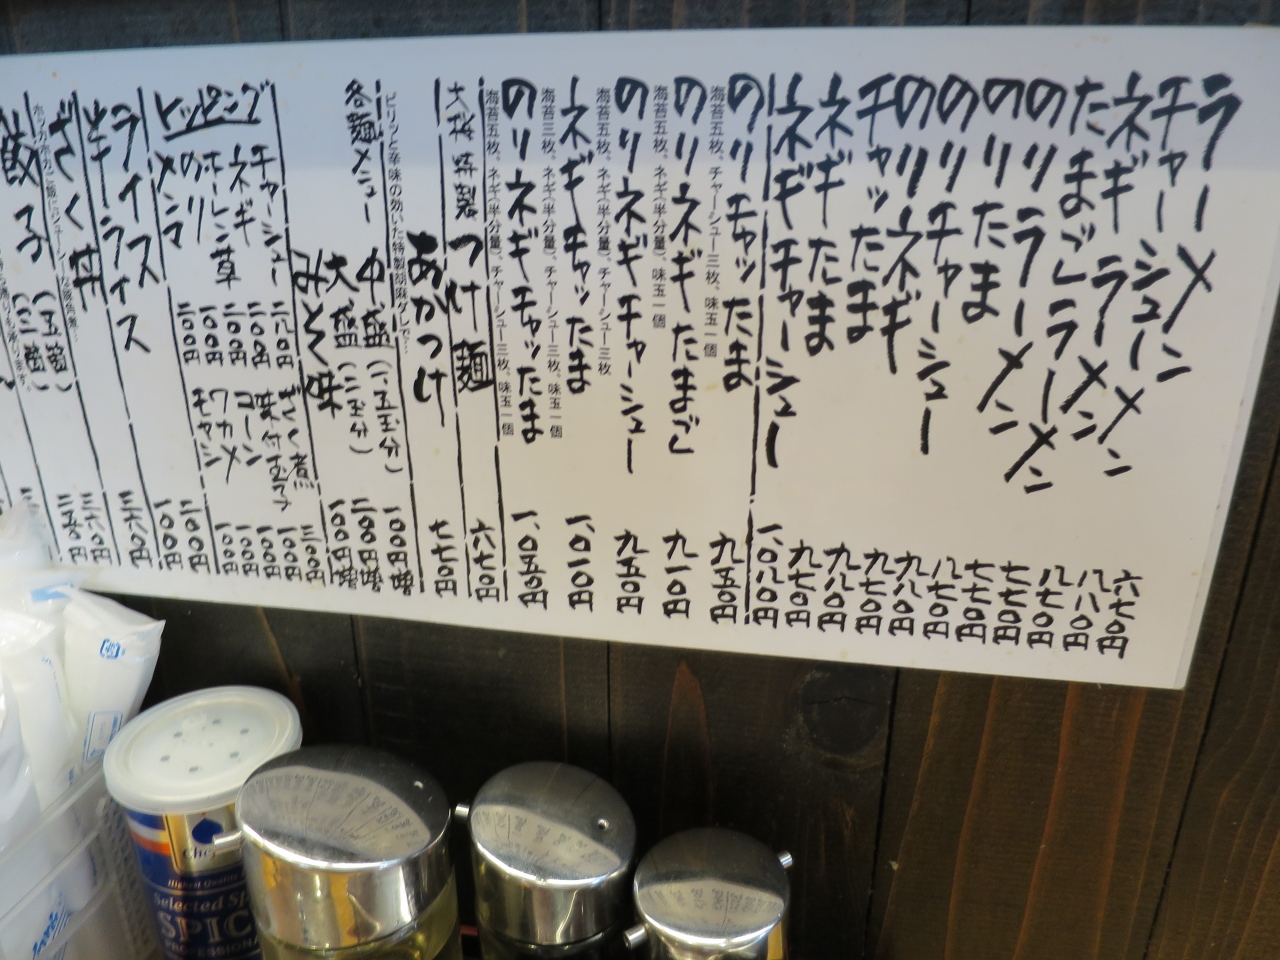 ラーメン 六七〇円
チャーシューメン 八八〇円
ネギラーメン 八七〇円
たまごラーメン 七七〇円
のりラーメン 七七〇円
のりたま 八七〇円
のりチャーシュー 九八〇円
のりネギ 九七〇円
チャッたま 九八〇円
ネギたま 九七〇円
ネギチャーシュー 一、〇八〇円
のりチャッたま 九五〇円
海苔五枚、チャーシュー三枚、味玉一個
のりネギたまご 九一〇円
海苔五枚、ネギ(半分量)、味玉一個
のりネギチャーシュー 九五〇円
海苔五枚、ネギ(半分量)、チャーシュー三枚
ネギチャッたま 一、〇一〇円
海苔三枚、ネギ(半分量)、チャーシュー三枚、味玉一個
のりネギチャッたま 一、〇五〇円
海苔五枚、ネギ(半分量)、チャーシュー三枚、味玉一個
特製つけ麺 六七〇円
あかつけ 七七〇円
ピリッと辛味の効いた特製胡麻ダレで…
各麺メニュー 中盛(一、五玉分) 一〇〇円増
大盛(二玉分)
トッピング
チャーシュー
ネギ
ホーレン草
のり
メンマ
ワカメ 一〇〇円
コーン 一〇〇円
モヤシ 一〇〇円
ライス
半ライス
ぎく丼
餃子(五個)
(三個)
Selected
SPIC
PROFESSIONA
Highest Quality